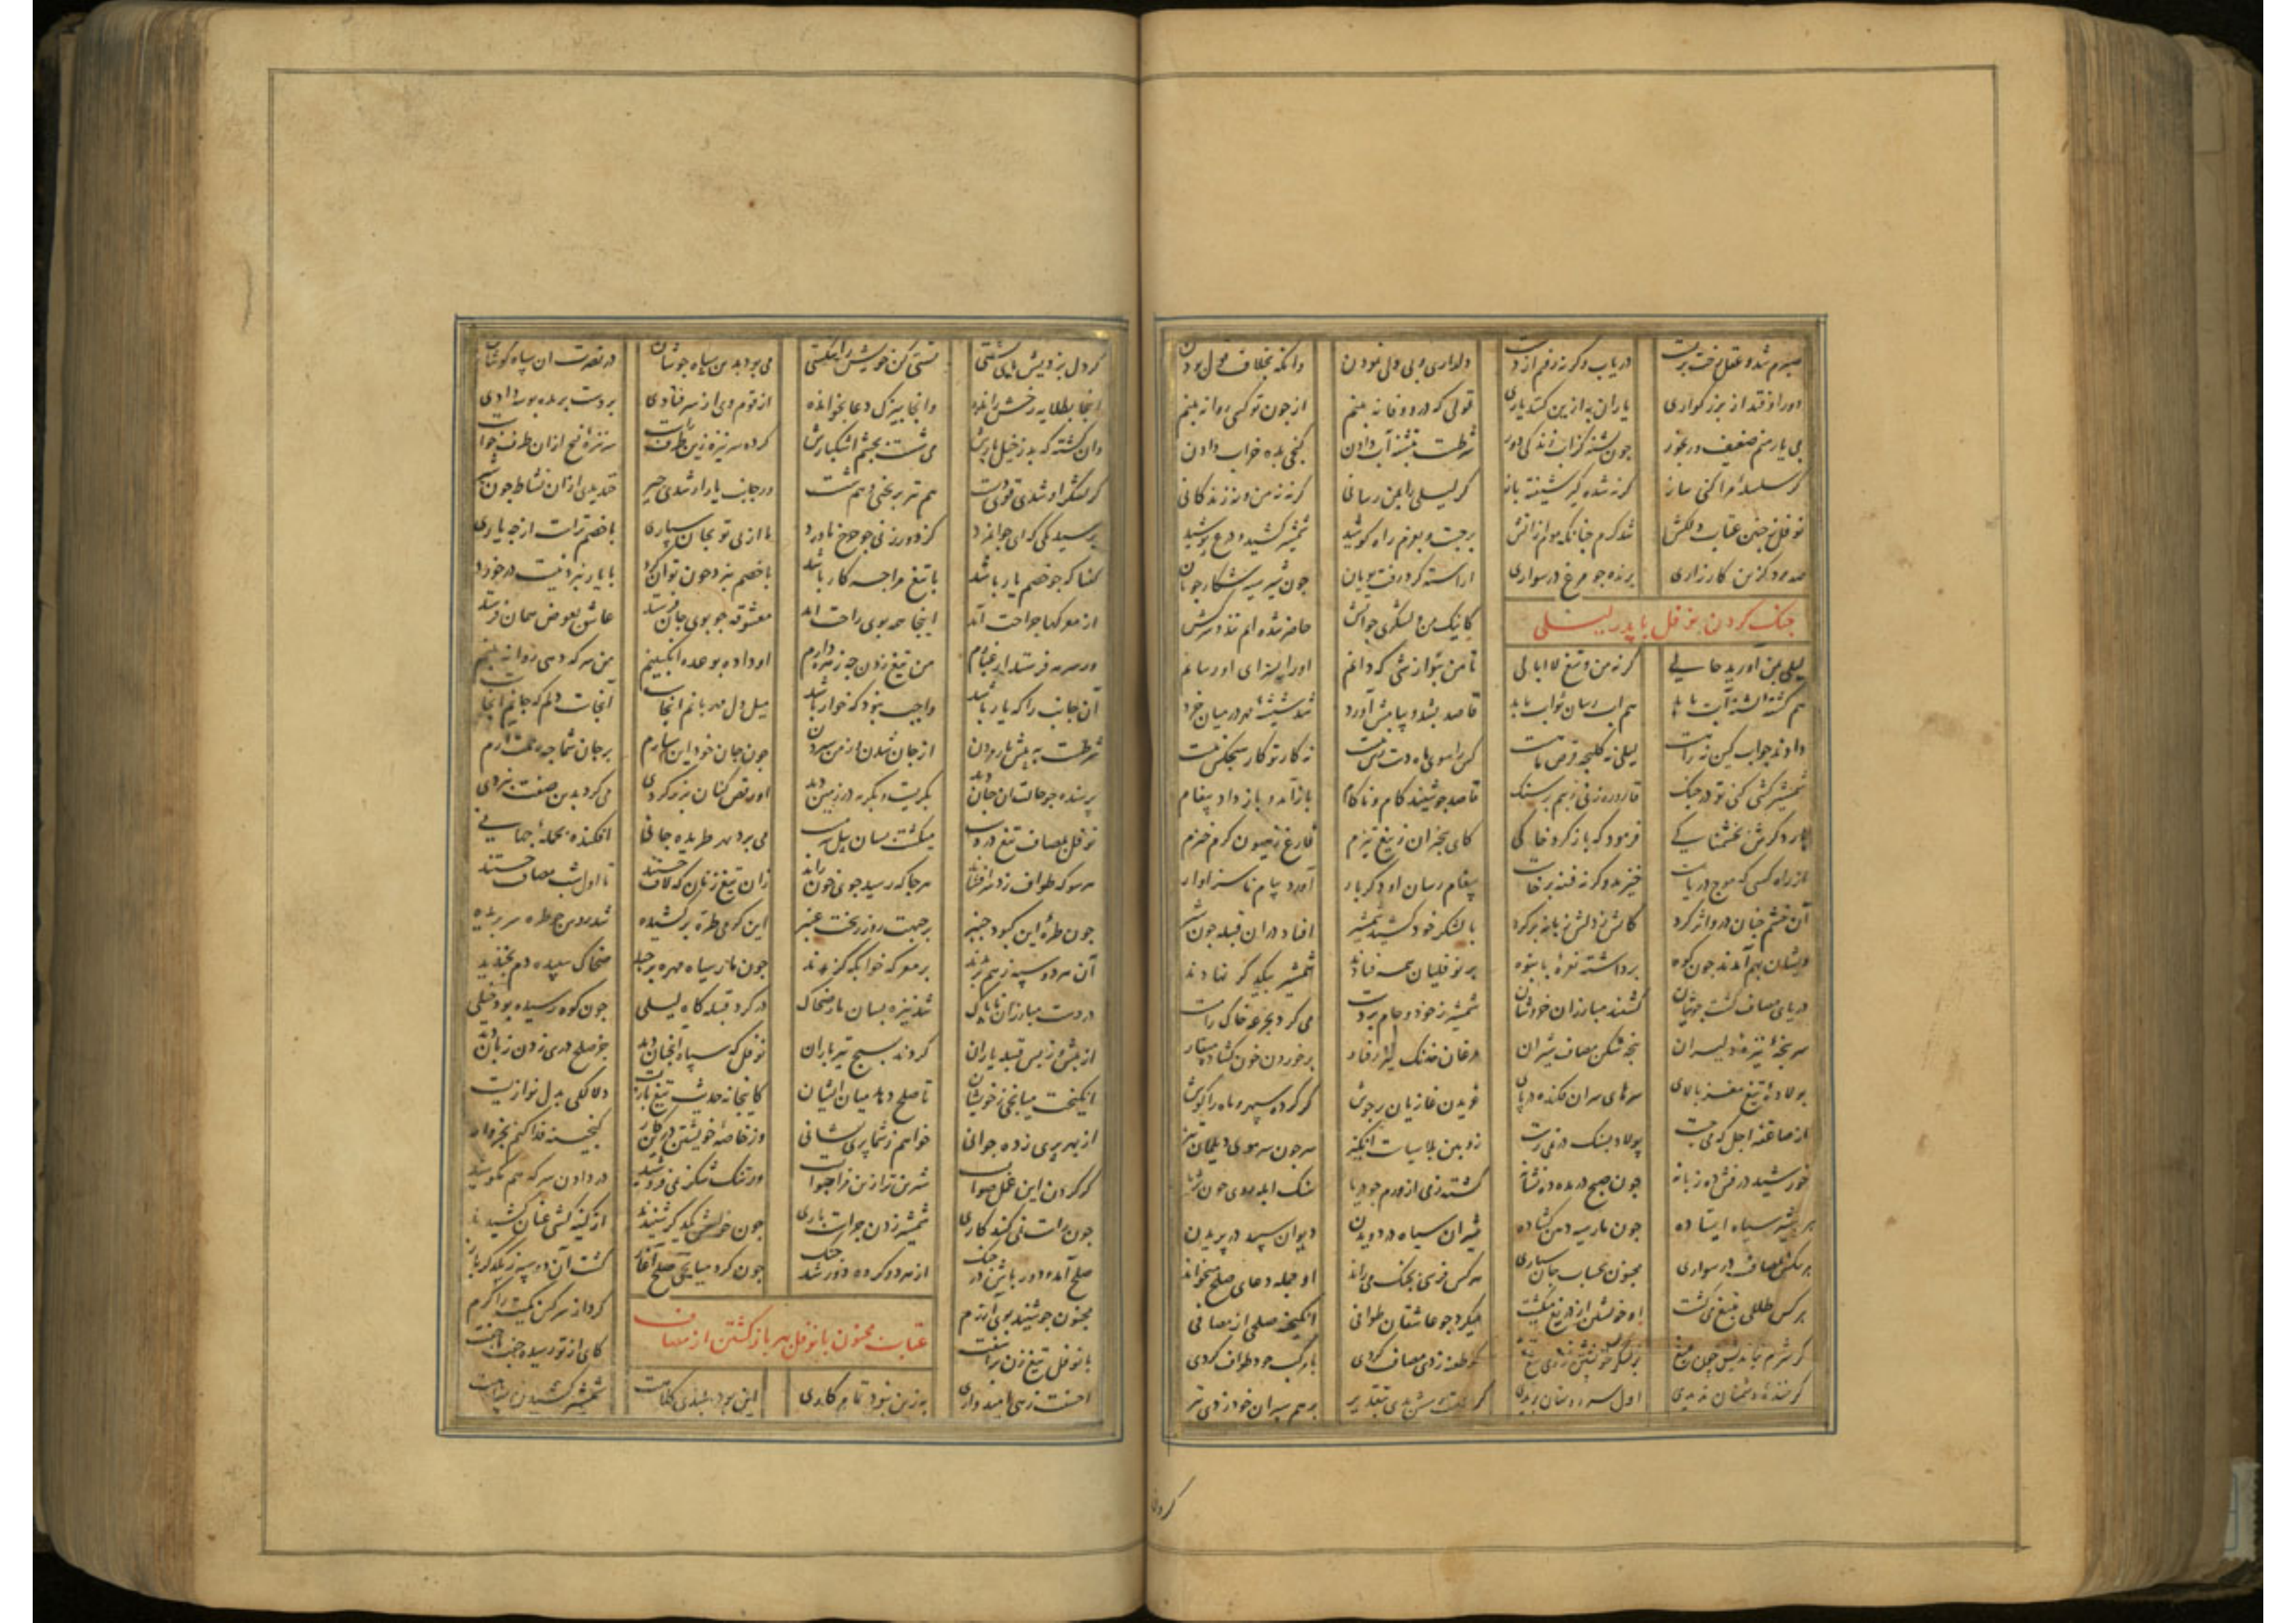 صبرم شد و عقل رخت بربست دریاب وگرنه رفتم از دست دلداری و بی دلی نمودن وانگه بخلاف قول بودن
دور اوفتد از بزرگواری یاران به ازین کنند یاری قولی که درو وفا نه بینم از چون تو کسی روا نه بینم
بی یار منم ضعیف و رنجور چون تشنه ز آب زندگی دور شرطست بتشنه آب دادن گنجی بده خراب دادن
گر سلسله مرا کنی ساز ورنه شده گیر شیفته باز گر لیلی را بمن رسانی ورنه نه من و نه زندگانی
نوفل ز چنین عتاب دلکش شد گرم چنانکه موم از آتش برجست و بعزم راه کوشید شمشیر کشید و درع پوشید
صد مرد گزین کارزاری پرنده چو مرغ در سواری آراسته کرد و رفت پویان چون شیر سیه شکار جویان
جنک کردن نوفل با پدر لیلی کاینک من و لشکری چو آتش حاضر شده ایم تند و سرکش
لیلی بمن آورید حالی گرنه من و تیغ لاابالی تا من بنوازشی که دانم اورا بسزای او رسانم
هم کشته تشنه آب یابد هم آب رسان ثواب یابد قاصد بشد و پیامش آورد شد شیشه مهر در میان خرد
دادند جواب کین نه راهست لیلی نه کلیچه قرص ماهست کس را سوی ماه دست رس نیست نه کار تو کار هیچکس نیست
شمشیر کشی کشی تو در جنک قاروره زنی زنیم بر سنک قاصد چو شنید کام و ناکام بازآمد و باز داد پیغام
بار دگرش بخشمناکی فرمود که باز گرد خاکی کای بیخبران ز تیغ تیزم فارغ ز هیون گرم خیزم
از راه کسی که موج دریاست خیزید وگرنه فتنه برخاست پیغام رسان او دگربار آورد پیام ناسزاوار
آن خشم چنان درو اثر کرد کاتش ز دلش زبانه برکرد با لشکر خود کشید شمشیر افتاد دران قبیله چون شیر
ویشان بهم آمدند چون کوه برداشته نعره بانبوه بر نوفلیان همه فتادند شمشیر بیکدگر نهادند
دریای مصاف گشت جوشان گشتند مبارزان خروشان شمشیر ز خون جام بر دست می کرد بجرعه خاک را مست
سرپنجه نیزه دلیران پنجه شکن مصاف شیران مرغان خدنک تیز رفتار برخوردن خون گشاده منقار
پولاده تیغ مغز پالای سرهای سران فکنده در پای غریدن تازیان پرجوش کر کرده سپهر و ماه را گوش
از صاعقه اجل که می جست پولاد بسنک در نمی رست زوبین بلا سیاست انگیز سر چون سر موی دیلمان تیز
خورشید درفش ده زبانه چون صبح دریده ده نشانه گشته زمی از ورم چو دریا سنک آبله روی چون ثریا
هر شیر سیاه ایستاده چون مار سیه دهن گشاده شیران سیاه در دویدن دیوان سپید در پریدن
هرکس بمصاف در سواری مجنون بحساب جان سپاری هرکس فرسی بجنک می راند او جمله دعای صلح میخواند
هرکس طللی بتیغ می کشت او خویشتن از دریغ میکشت میکرد چو عاشقان طوافی انگیخته صلحی از مصافی
گر شرم نیامدیش چون میغ بر لشکر خویشتن زدی تیغ گر طعنه زدی مصاف کردی طواف کردی
گر خنده دشمنان ندیدی اول سر دوستان بریدی گر دست رسش بدی بتقدیر برهم سپران خود زدی تیر
گر دل
گر دل نزدیش پای پشتی خویش را بکشتی می بود بدین سپاه جوشان در نصرت آن سپاه کوشان
اینجا بطلایه رخش رانده وانجا بیزک دعا بخوانده از قوم وی ار سر فتادی بر دست برنده بوسه دادی
وان کشته که بد ز خیل یارش می شست بچشم اشکبارش کرده سر نیزه زین طرف راست سر نیزه فتح ازان طرف خواست
گر لشکر او شدی قوی دست هم تیر بریختی و هم شست ور جانب یار او شدی چیر خندیدی ازان نشاط چون شیر
پرسید یکی که ای جوانمرد کز دور زنی چو چرخ ناورد ما از پی تو بجان سپاری با خصم تراست از چه یاری
گفتا که چو خصم یار باشد با تیغ مرا چه کار باشد با خصم نبرد چون توان کرد با یار نبرد نیست در خورد
از معرکها جراحت آید اینجا همه بوی راحت آید معشوقه چو بوی جان فرستد عاشق بعوض همان فرستد
ور سر بفرستد از غبارم من تیغ زدن چه زهره دارم او داده بوعده انگبینم من سرکه دهم روا نه بینم
آن جانب را که یار باشد واجب نبود که خوار باشد میل دل مهربانم آنجاست آنجاست دلم که جانم آنجاست
شرطست به پیش یار مردن از جان شدن و ز من سپردن چون جان خود این سپارم بر جان شما چه رحمت آرم
پرسنده چو حالت آن چنان دید بگریست و بگریه در زمین دید او رقص کنان بزیر گردی می کرد بدین صفت نبردی
نوفل بمصاف تیغ در دست میکشت بسان پیل سرمست می برد بهر طریده جانی افکنده بحمله جهانی
هر سو که طواف زد سر افشاند هرجا که رسید جوی خون راند زان تیغ زنان که لاف جستند تا اول شب مصاف جستند
چون طره این کبود چنبر بر جبهت روز ریخت عنبر این گرجی طره برکشیده شد روس چو طره سر بریده
آن هر دو سپه ز هم بریدند بر معرکه خوابگه گزیدند چون مار سیاه مهره برچید ضحاک سپیده دم بخندید
در دست مبارزان چالاک شد نیزه بسان مار ضحاک در گرد قبیله گاه لیلی چون کوه رسیده بود خیلی
از پیش و ز پس قبیله یاران کردند بسیج تیر باران نوفل که سپاه آنچنان دید جز صلح دری زدن زیان دید
انگیخت میانجی ز خویشان تا صلح دهد میان ایشان کاینجا نه حدیث تیغ بازیست دلالگی بدل نوازیست
از بهر پری زده جوانی خواهم ز شما پری نشانی وز خاصه خویشتن درین کار گنجینه فدا کنم بخروار
گر کردن این عمل صوابست شیرین تر ازین مرا جوابست ور شکر نمی فروشید در دادن سرکه هم مکوشید
چون راست نمی کنند کاری شمشیر زدن چراست باری چون خواهش یکدگر شنیدند از کینه کشی عنان کشیدند
صلح آمد و دور باش در جنک از هر دو گروه دور شد جنک چون کرد میانجی صلح آغاز گشت آن دو سپه ز یکدگر باز
مجنون چو شنید بوی آزرم کرد از سر کین کمیت را گرم
عتاب مجنون با نوفل بهر باز گشتن از مصاف
با نوفل تیغ زن برآشفت کای از تو رسیده جفت با جفت
احسنت زهی امیدواری به زین نبود تمام کاری این بود بلندی کلاهت شمشیر کشیدن سپاهت